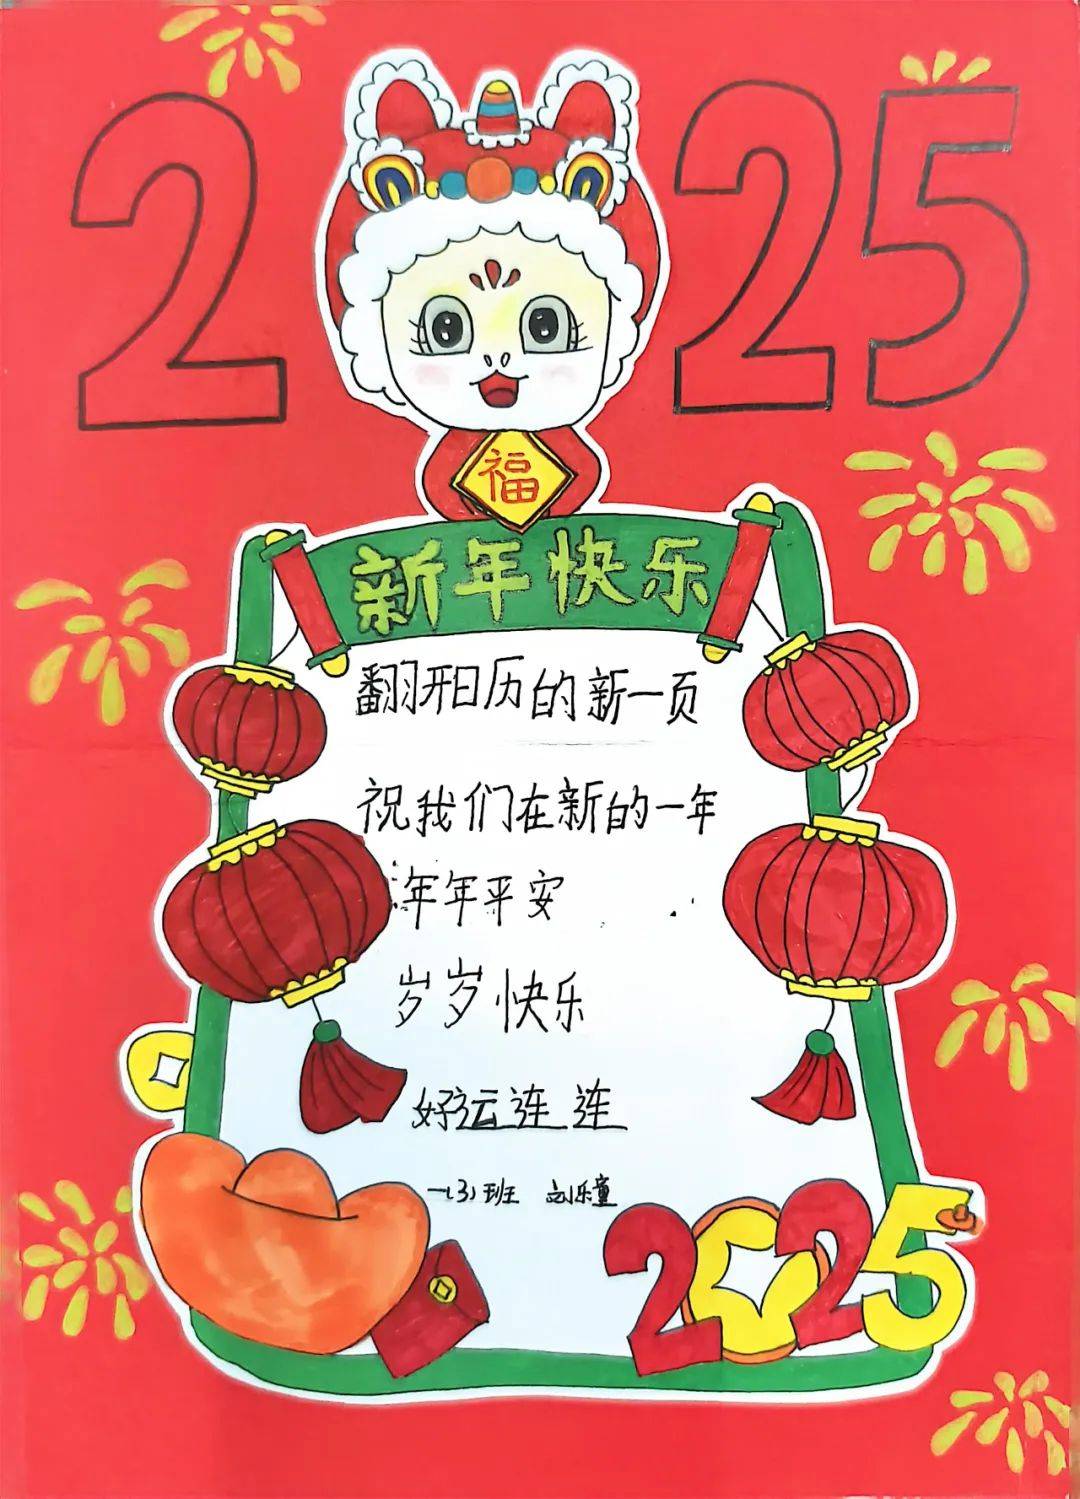 2 25
福
新年快乐
翻开日历的新一页
祝我们在新的一年
年年平安
岁岁快乐
好运连连
一(3)班 刘乐童
2025